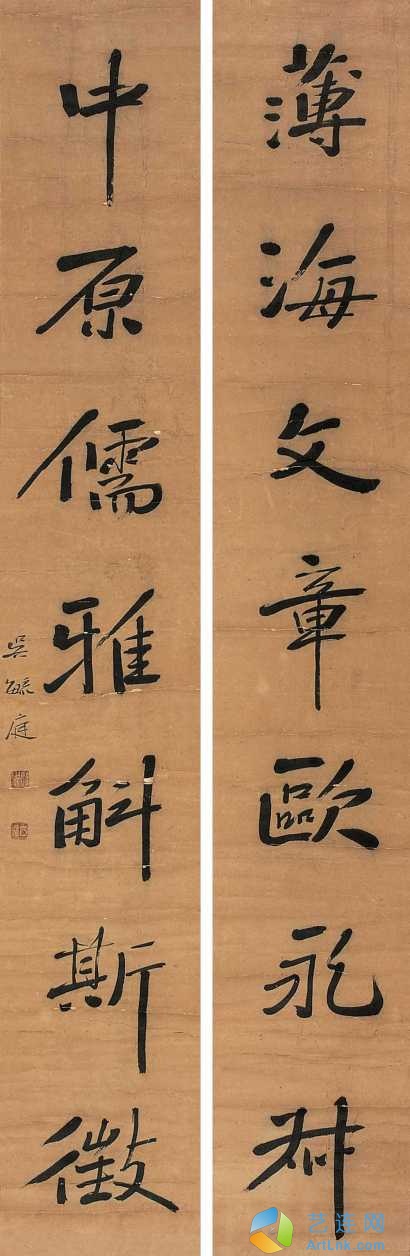 薄海文章歐永叔
中原儒雅斛斯徵
吳毓庭
艺连网
ArtLnk.com